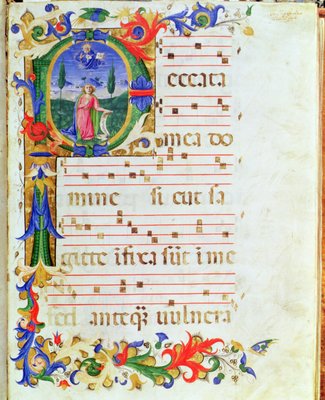 Peccata
mea do
mine si cut sa
gitte ifixa sūt i me
sed anteqꝫ uulnera